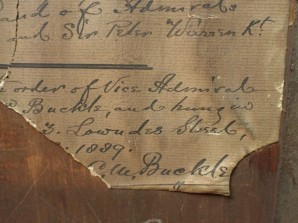 and of Admiral
and Sir Peter Warren Kt.
order of Vice Admiral
Buckle, and hung in
3. Lowndes Street,
1889.
C. M. Buckle